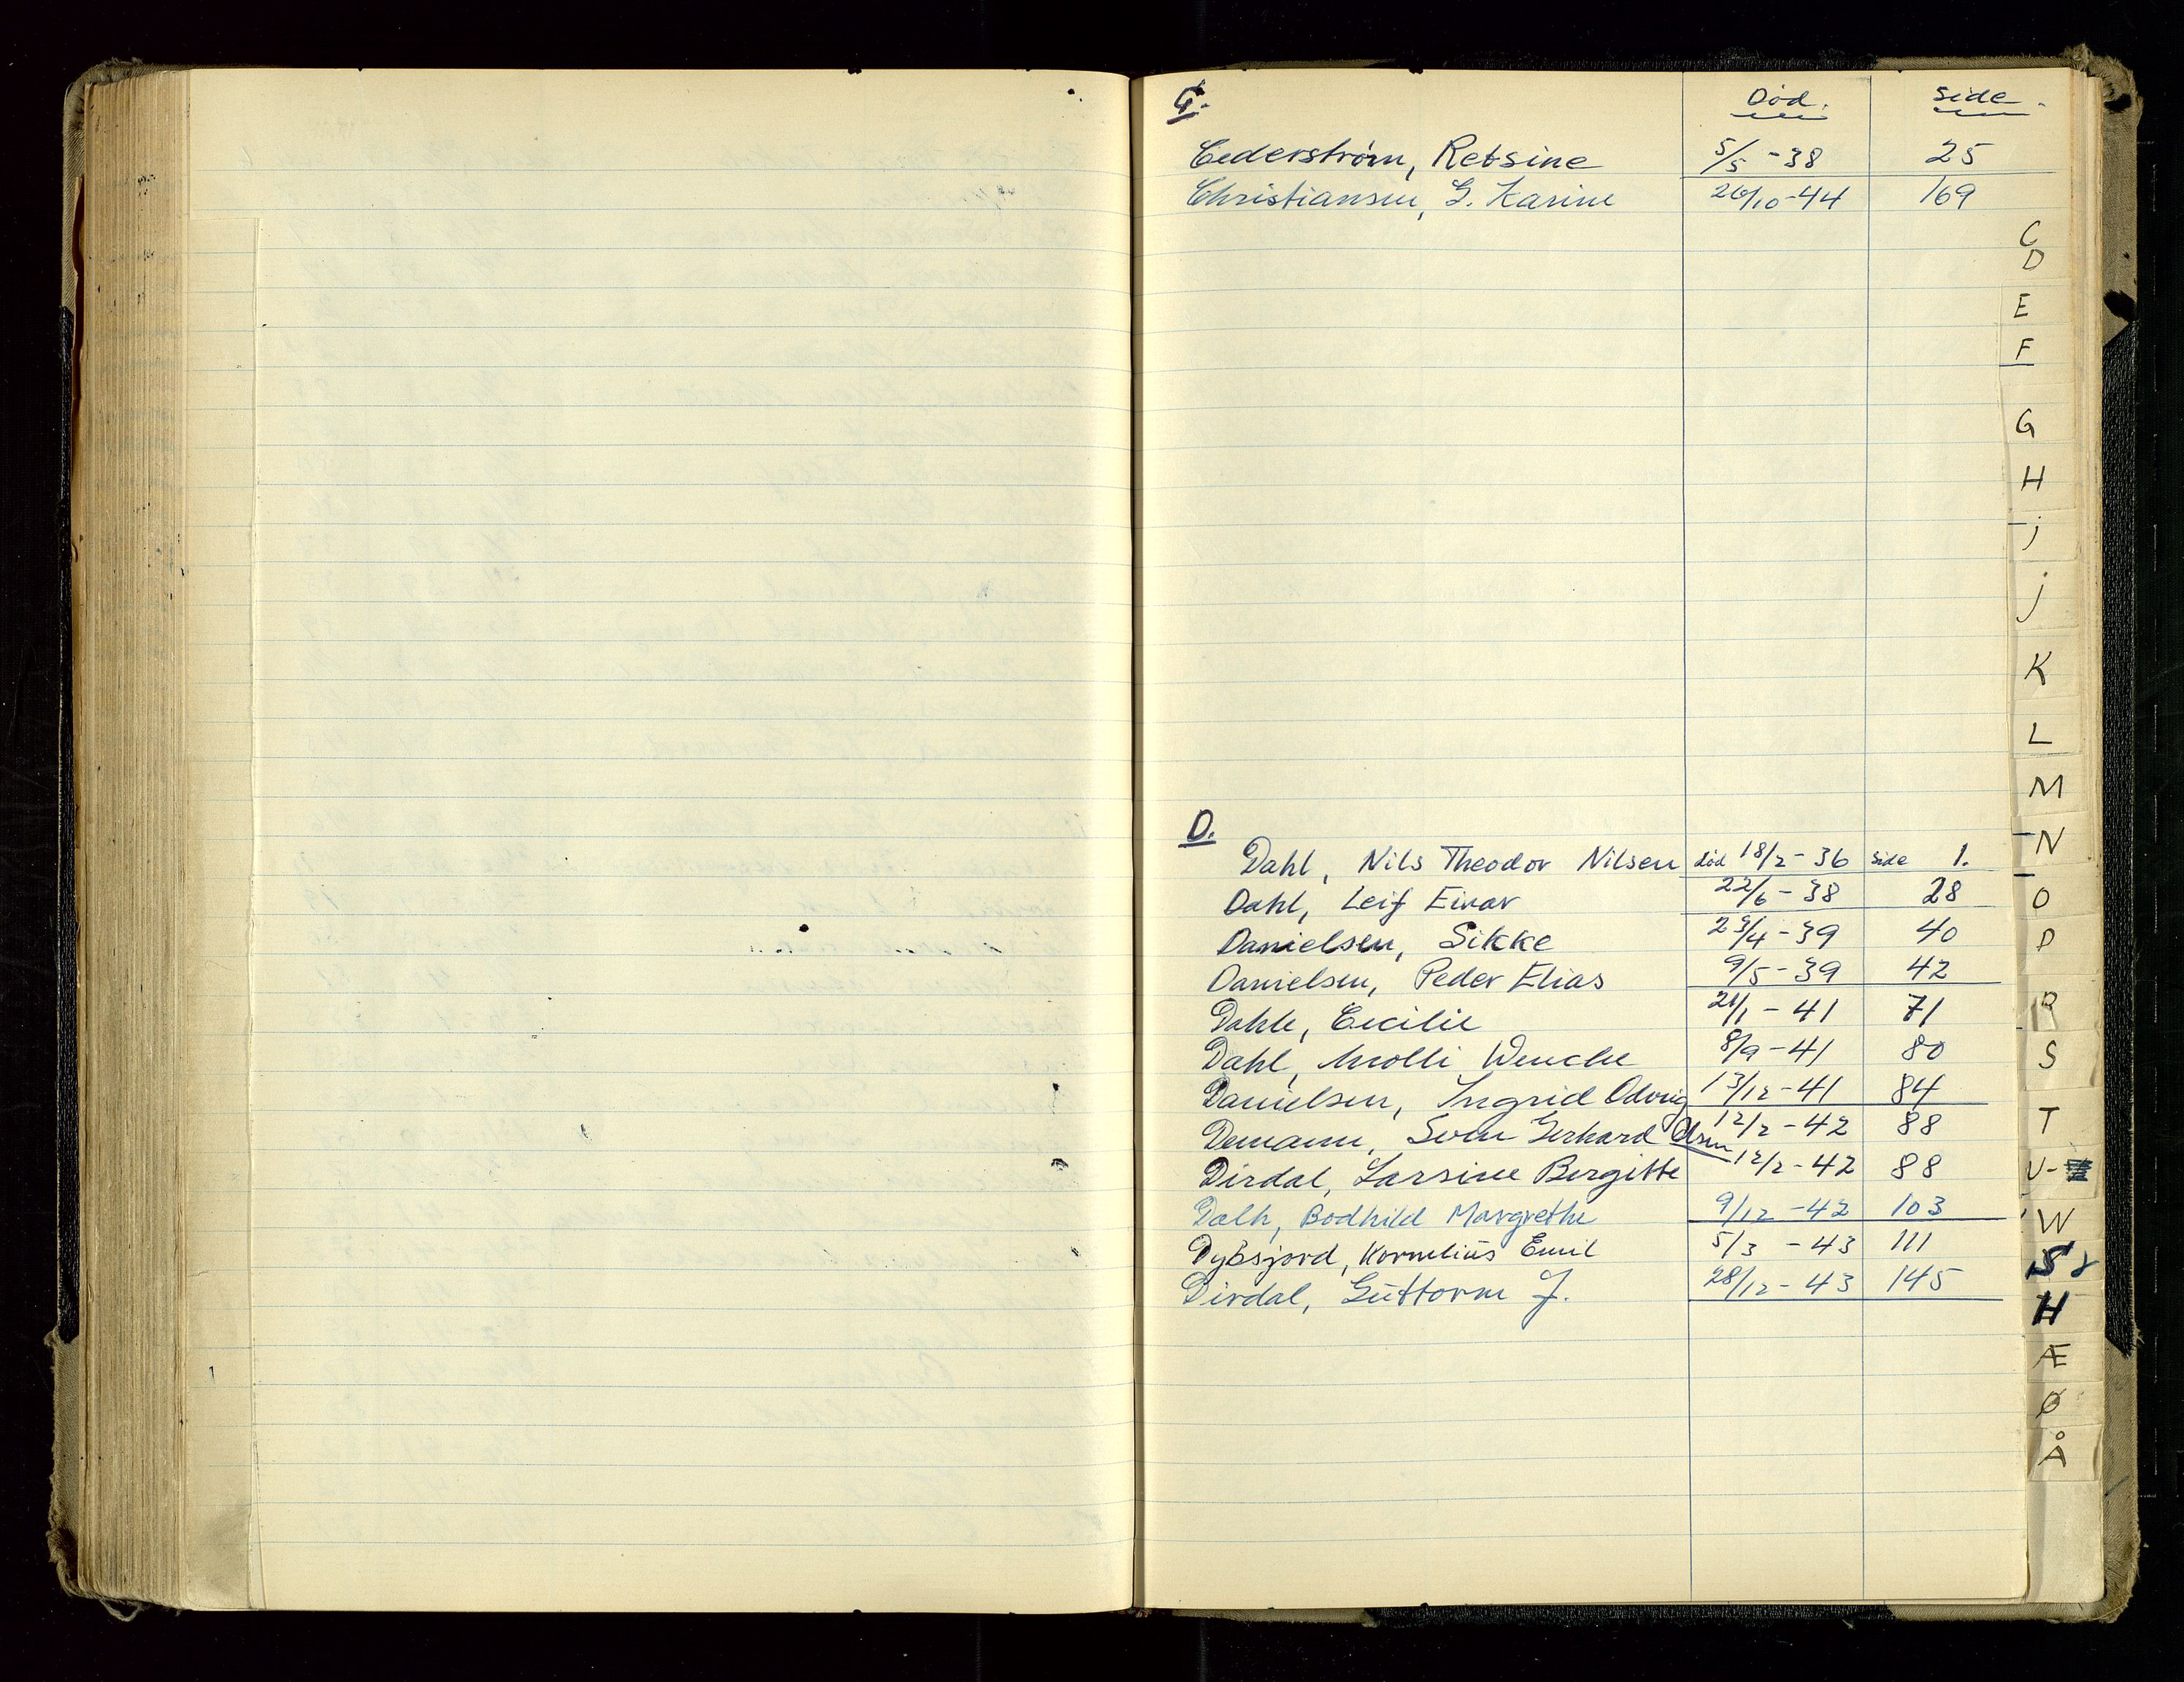 C. Død. Side.
Cederstrøm, Retsine 5/5 - 38 25
Christiansen, G. Karine 26/10 - 44 169
D.
Dahl, Nils Theodor Nilsen død 18/2 - 36 side 1.
Dahl, Leif Einar 22/6 - 38 28
Danielsen, Sikke 23/4 - 39 40
Danielsen, Peder Elias 9/5 - 39 42
Dahle, Cecilie 21/1 - 41 71
Dahl, Molli Wenche 8/9 - 41 80
Danielsen, Ingrid Odveig 13/12 - 41 84
Demann, Sven Gerhard Olsen 12/2 - 42 88
Dirdal, Larsine Bergitte 12/2 - 42 88
Dalh, Bodhild Margrethe 9/12 - 42 103
Dybsjord, Kornelius Emil 5/3 - 43 111
Dirdal, Guttorm J. 28/12 - 43 145
C
D
E
F
G
H
i
j
K
L
M
N
O
P
R
S
T
U-
W
H
Æ
Ø
Å